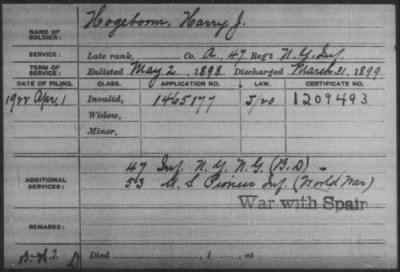 NAME OF SOLDIER: Hogeboom, Harry J.
SERVICE: Late rank, Co. A, 47 Reg't N.Y. Inf.
TERM OF SERVICE: Enlisted May 2, 1898 Discharged March 31, 1899
DATE OF FILING. CLASS. APPLICATION NO. LAW. CERTIFICATE NO.
Apr. 1 Invalid, 1465177 1209493
Widow,
Minor,
47 Inf. N.Y. N.G. (B.D)
ADDITIONAL SERVICES: 53 U.S Pioneer Inf. (World War)
War with Spain
REMARKS:
Died , 1 , at